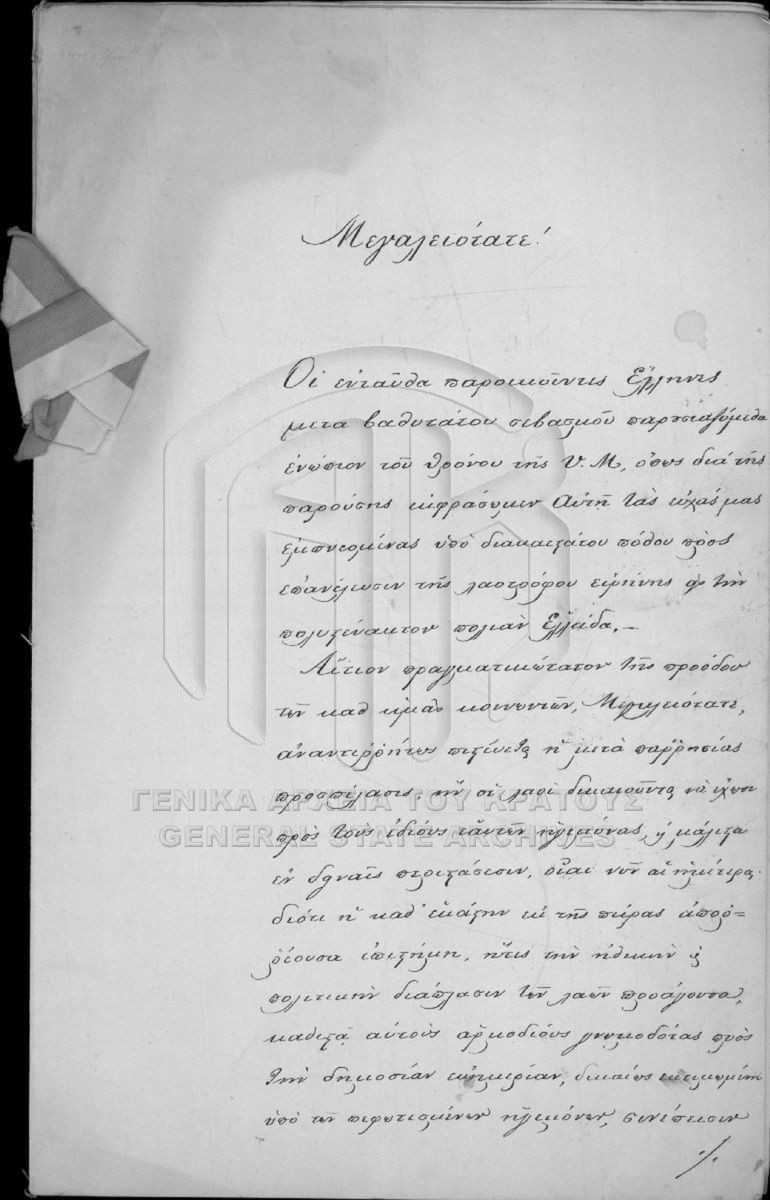 Μεγαλειότατε!
Οἱ ἐνταῦθα παροικοῦντες Ἕλληνες
μετα βαθυτάτου σεβασμοῦ παρουσιαζόμεθα
ἐνώπιον τοῦ θρόνου τῆς Υ. Μ, ὅπως διὰ τῆς
παρούσης ἐκφράσωμεν Αὐτῇ τὰς εὐχάς μας
ἐμπνεομένας ὑπὸ διακαεστάτου πόθου πρὸς
ἐπανέλευσιν τῆς λαοτρόφου εἰρήνης εἰς τὴν
πολυστένακτον πολιὰν Ἑλλάδα. —
Αἴτιον πραγματικώτατον τῆς προόδου
τῶν καθ' ἡμᾶς κοινωνιῶν, Μεγαλειότατε,
ἀναντιῤῥήτως πιστεύεται ἡ μετὰ παῤῥησίας
προσπέλασις, ἣν οἱ λαοὶ δικαιοῦνται νὰ ἔχωσι
πρὸς τοὺς ἰδίους ἑαυτῶν ἡγεμόνας, ἢ μάλιστα
ἐν δειναῖς περιστάσεσιν, οἷαι νῦν αἱ ἡμέτεραι·
διότι ἡ καθ' ἑκάστην ἐκ τῆς πείρας ἀποῤ=
ῥέουσα ἐπιστήμη, ἥτις τὴν ἠθικὴν καὶ
πολιτικὴν διάπλασιν τῶν λαῶν προάγουσα,
καθιστᾷ αὐτοὺς ἁρμοδίους γνωμοδότας πρὸς
τὴν δημοσίαν εὐημερίαν, δικαίως
ὑπὸ τῶν πεφωτισμένων ἡγεμόνων, συνέπεισεν
./.
ΓΕΝΙΚΑ ΑΡΧΕΙΑ ΤΟΥ ΚΡΑΤΟΥΣ
GENERAL STATE ARCHIVES